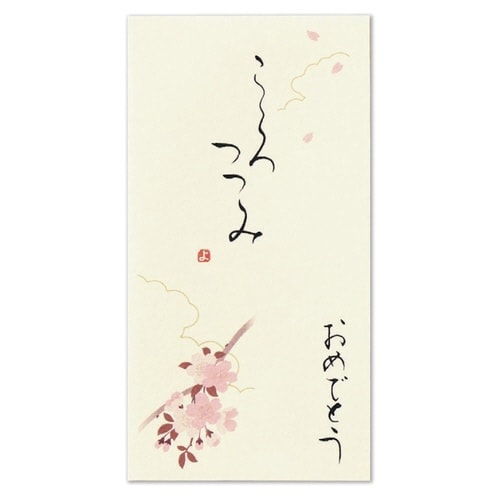 こころ
つつみ
よ
おめでとう